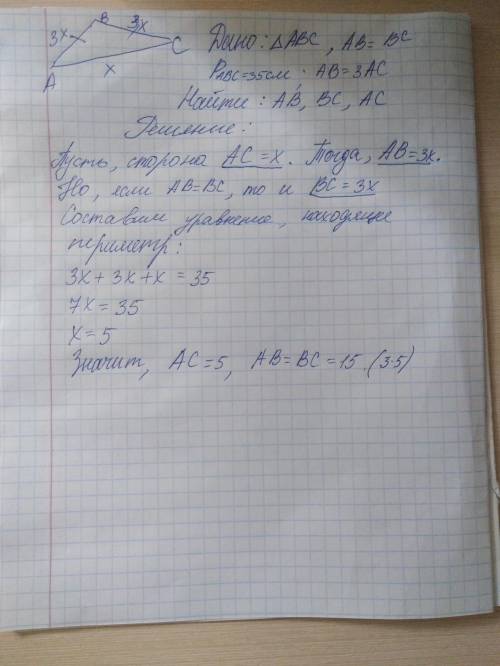 B
3x
3x
C
A
x
Дано: △ABC, AB = BC
P ABC = 35 см. AB = 3AC
Найти: AB, BC, AC
Решение:
Пусть, сторона AC = x. Тогда, AB = 3x.
Но, если AB = BC, то и BC = 3x
Составим уравнение, находящее
периметр:
3x + 3x + x = 35
7x = 35
x = 5
Значит, AC = 5, AB = BC = 15. (3·5)